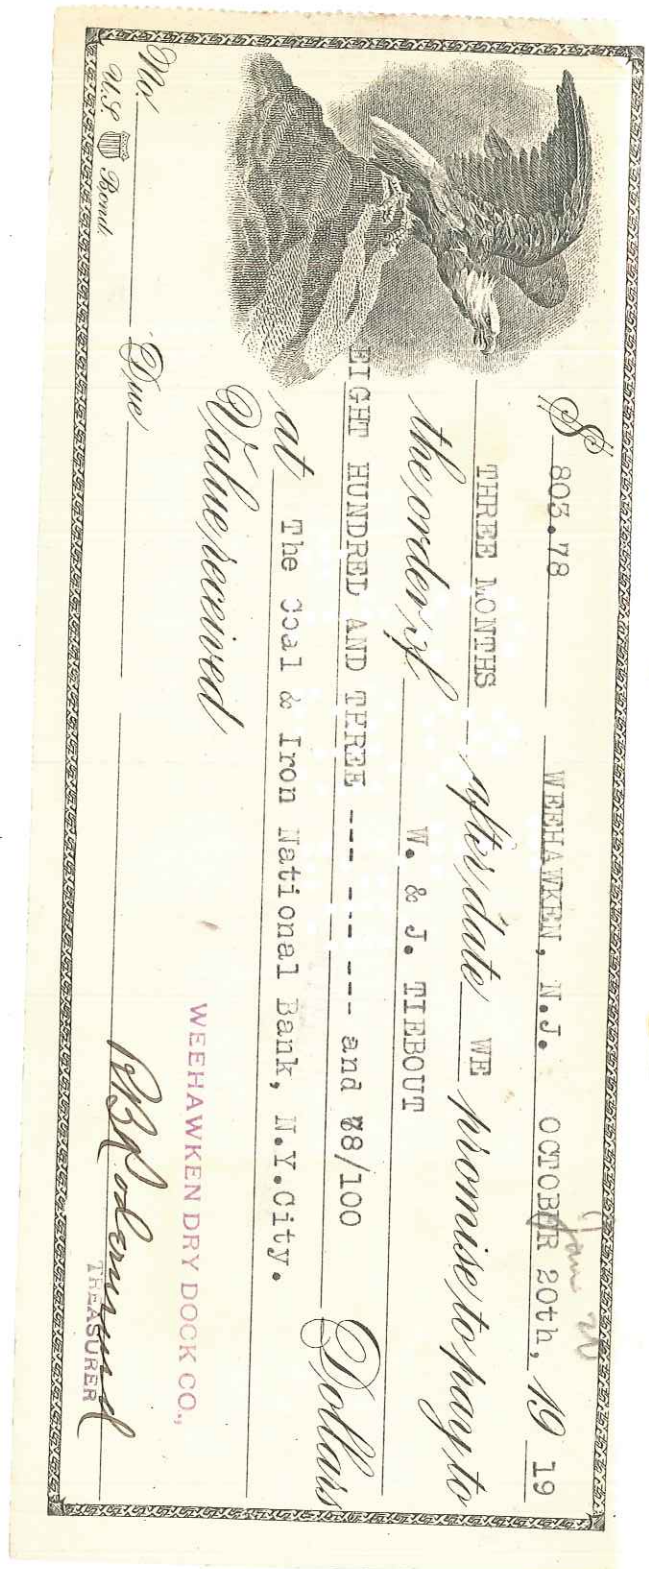 $ 803.78 WEEHAWKEN, N.J. OCTOBER 20th, 19 19
Jan 20
THREE MONTHS after date WE promise to pay to
the order of W. & J. TIEBOUT
EIGHT HUNDRED AND THREE --- --- --- and 78/100 Dollars
at The Coal & Iron National Bank, N.Y.City.
Value received
WEEHAWKEN DRY DOCK CO.,
No. Due
TREASURER
U.S. Bond